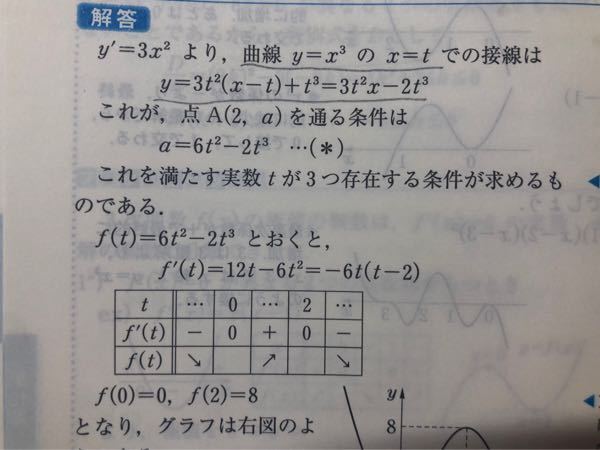 解答
y′=3x² より，曲線 y=x³ の x=t での接線は
y=3t²(x−t)+t³=3t²x−2t³
これが，点 A(2, a) を通る条件は
a=6t²−2t³ …(＊)
これを満たす実数 t が 3 つ存在する条件が求めるも
のである．
f(t)=6t²−2t³ とおくと，
f′(t)=12t−6t²=−6t(t−2)
t … 0 … 2 …
f′(t) − 0 + 0 −
f(t) ↘ ↗ ↘
f(0)=0, f(2)=8
となり，グラフは右図のよ
y
8